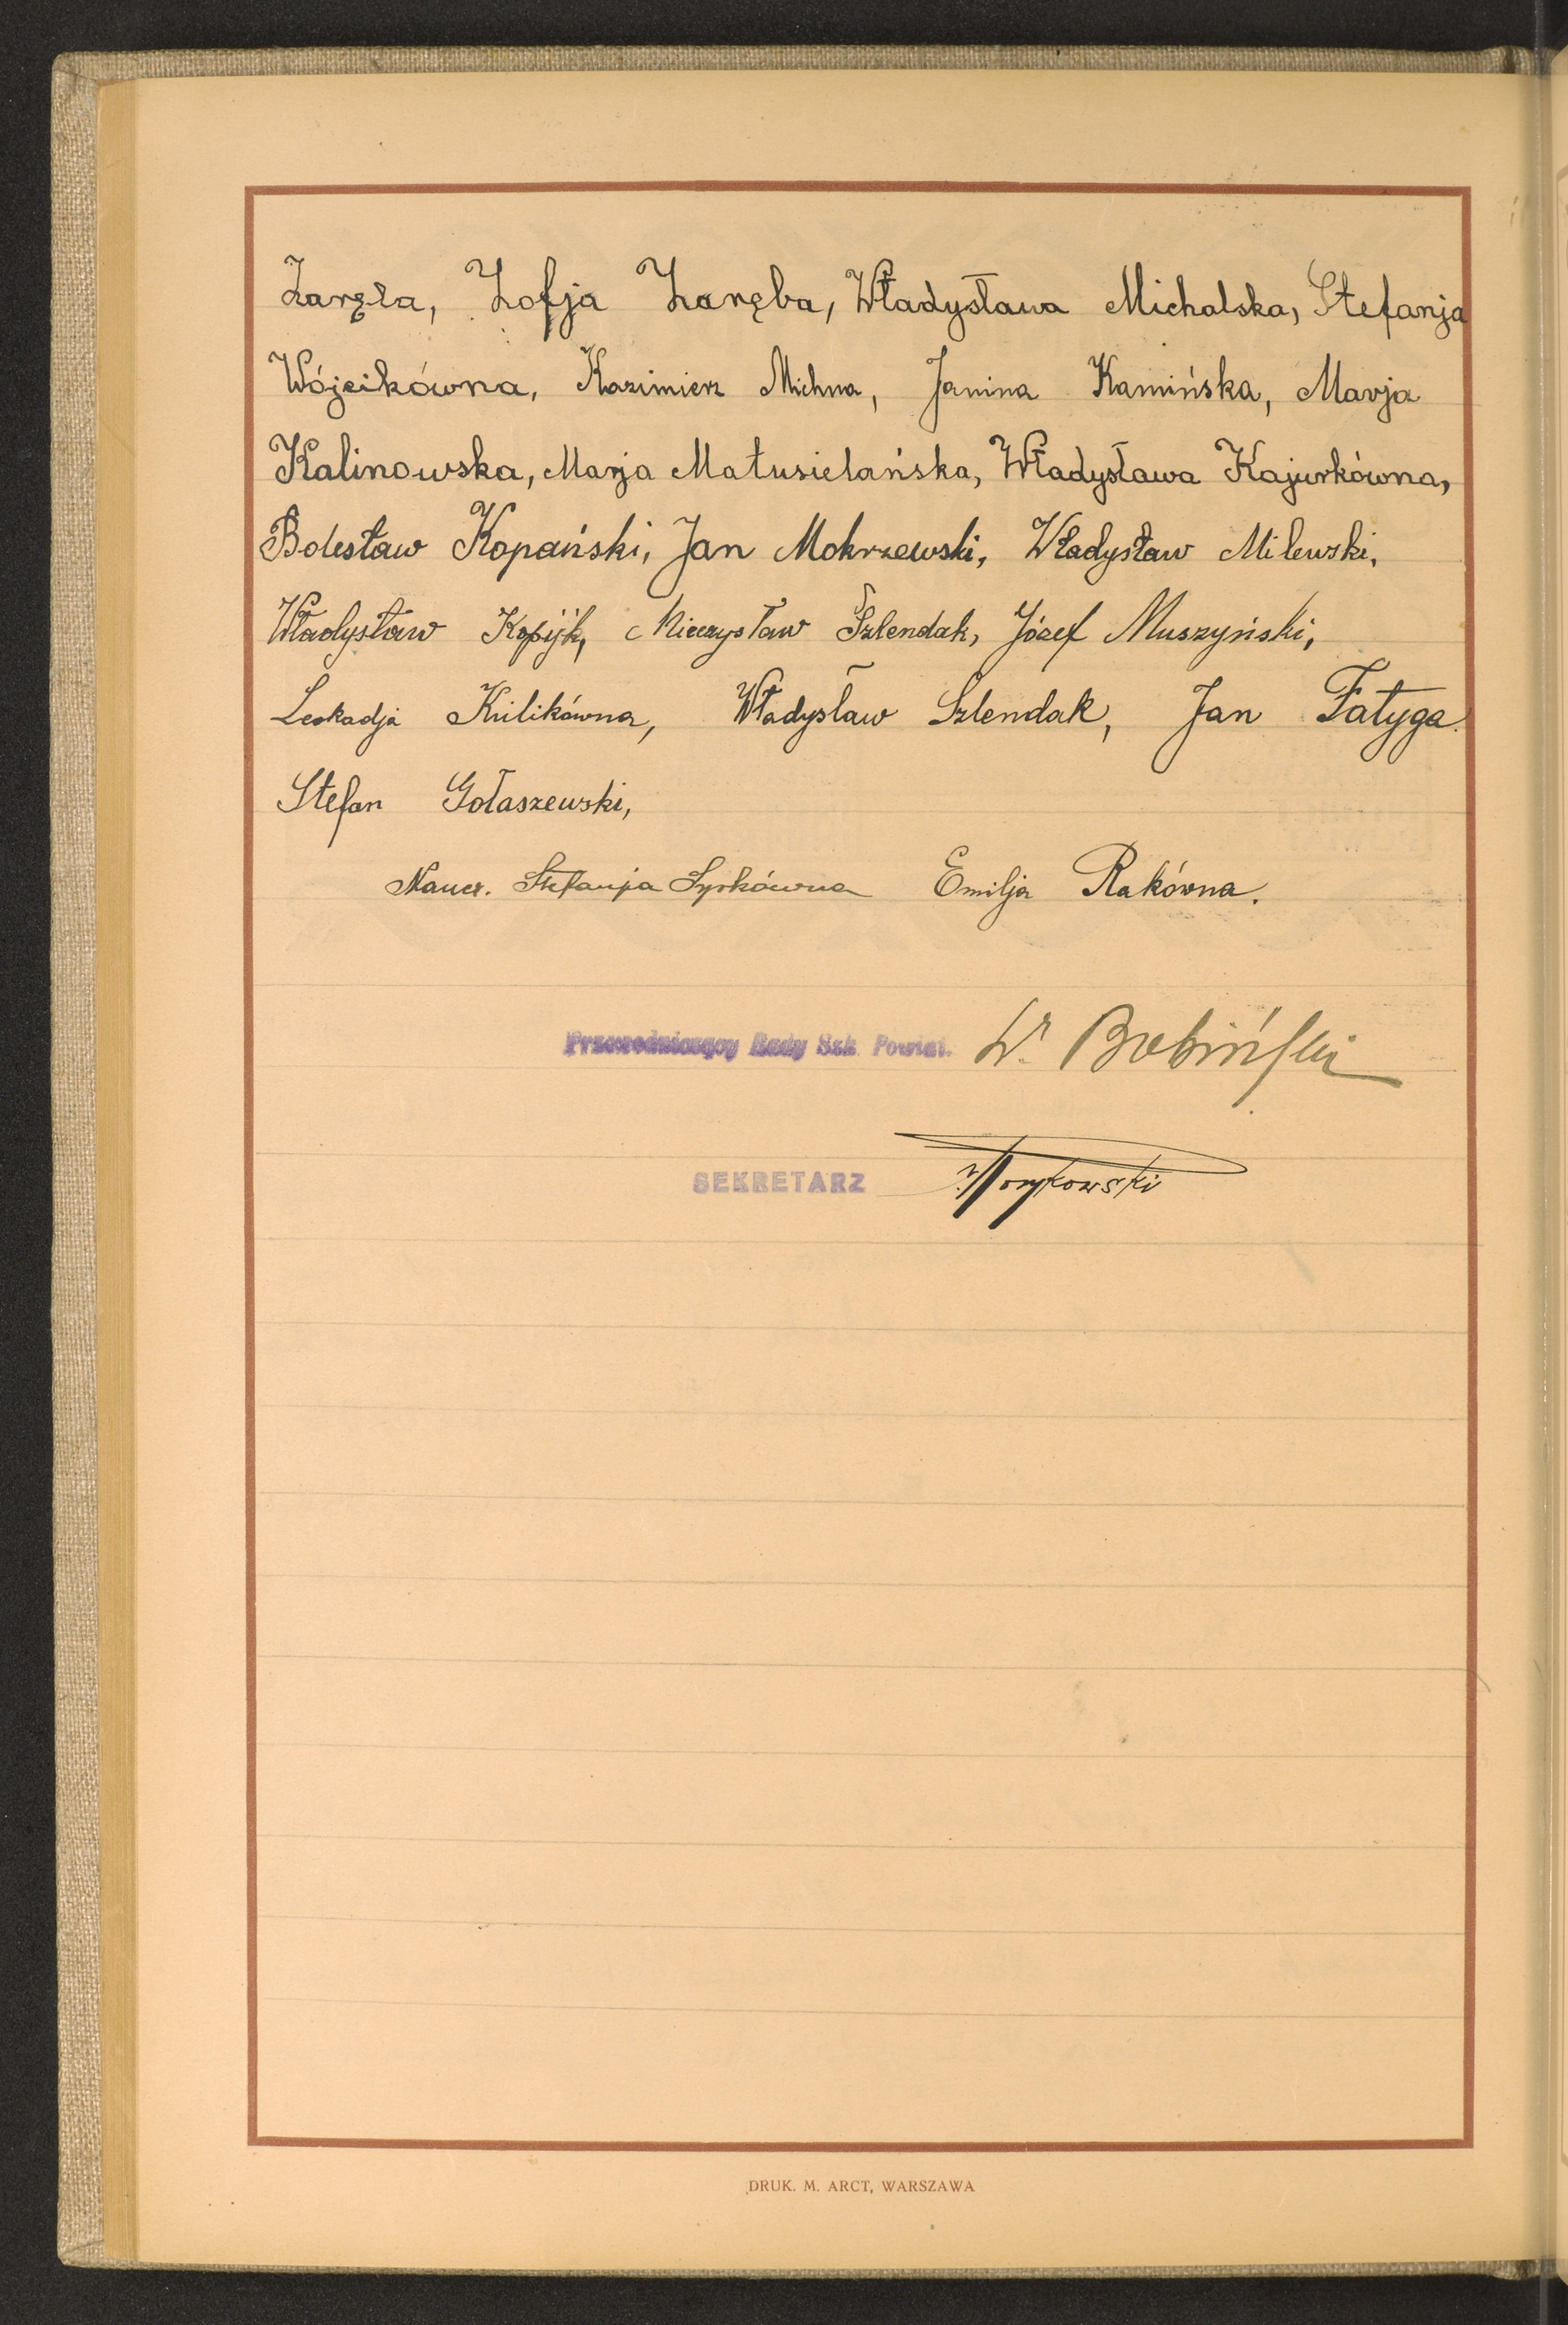 Zaręba, Zofja Zaręba, Władysława Michalska, Stefanja
Wójcikówna, Kazimierz Michna, Janina Kamińska, Marja
Kalinowska, Marja Matusielańska, Władysława Kajurkówna,
Bolesław Kopański, Jan Mokrzewski, Władysław Milewski,
Władysław Kopijk, Mieczysław Szlendak, Józef Muszyński,
Leokadja Kulikówna, Władysław Szlendak, Jan Fatyga
Stefan Gołaszewski,
Naucz. Stefanja Syrkówna Emilja Rakówna.
Przewodniczący Rady Szk. Powiat. Bobiński
SEKRETARZ
DRUK. M. ARCT, WARSZAWA